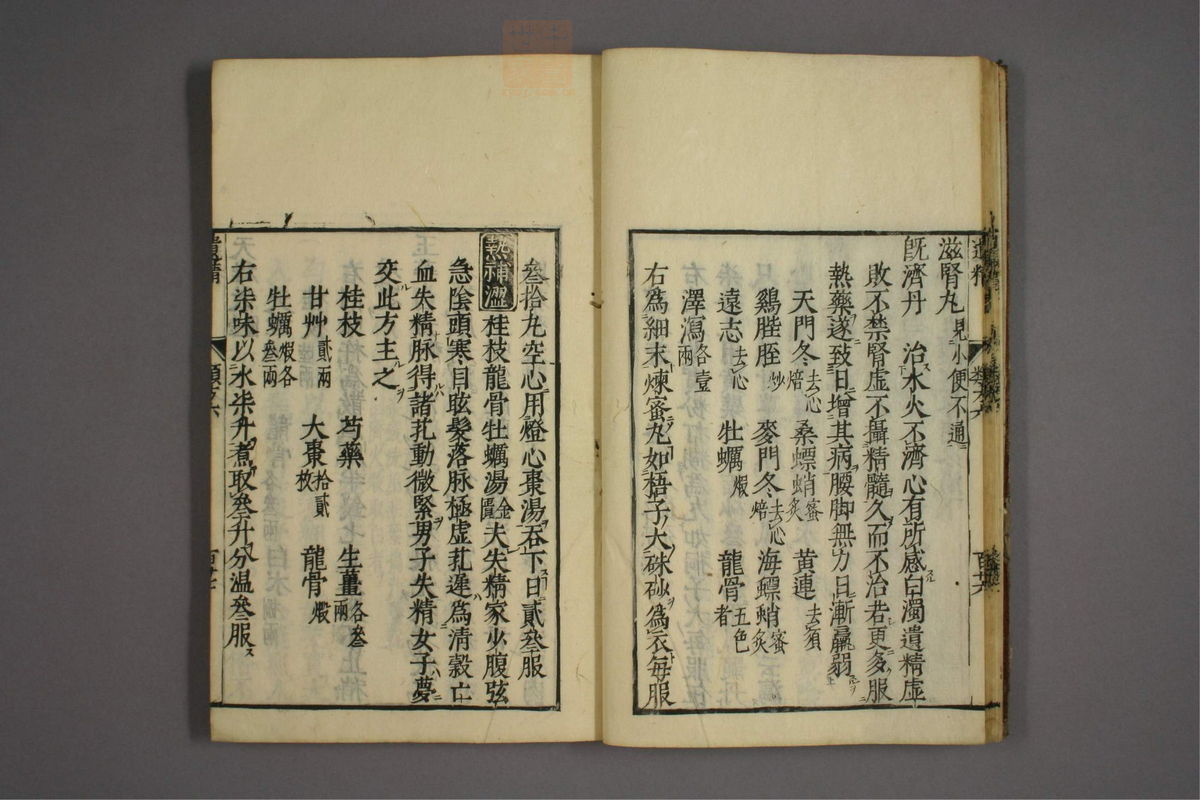 滋腎丸見小便不通
既濟丹 治水火不濟心有所感白濁遺精虛
敗不禁腎虛不攝精髓久而不治若更多服
熱藥遂致日增其病腰脚無力日漸羸弱
天門冬去心焙 桑螵蛸蜜炙 黃連去須
鷄膍胵炒 麥門冬去心焙 海螵蛸蜜炙
遠志去心 牡蠣煆 龍骨五色者
澤瀉各壹兩
右為細末煉蜜丸如梧子大硃砂為衣每服
叄拾丸空心用燈心棗湯吞下日貳叄服
熱補澀 桂枝龍骨牡蠣湯金匱夫失精家少腹弦
急陰頭寒目眩髮落脉極虛芤遲為清穀亡
血失精脉得諸芤動微緊男子失精女子夢
交此方主之
桂枝 芍藥 生薑各叄兩
甘艸貳兩 大棗拾貳枚 龍骨煆
牡蠣煆各叄兩
右柒味以水柒升煮取叄升分温叄服